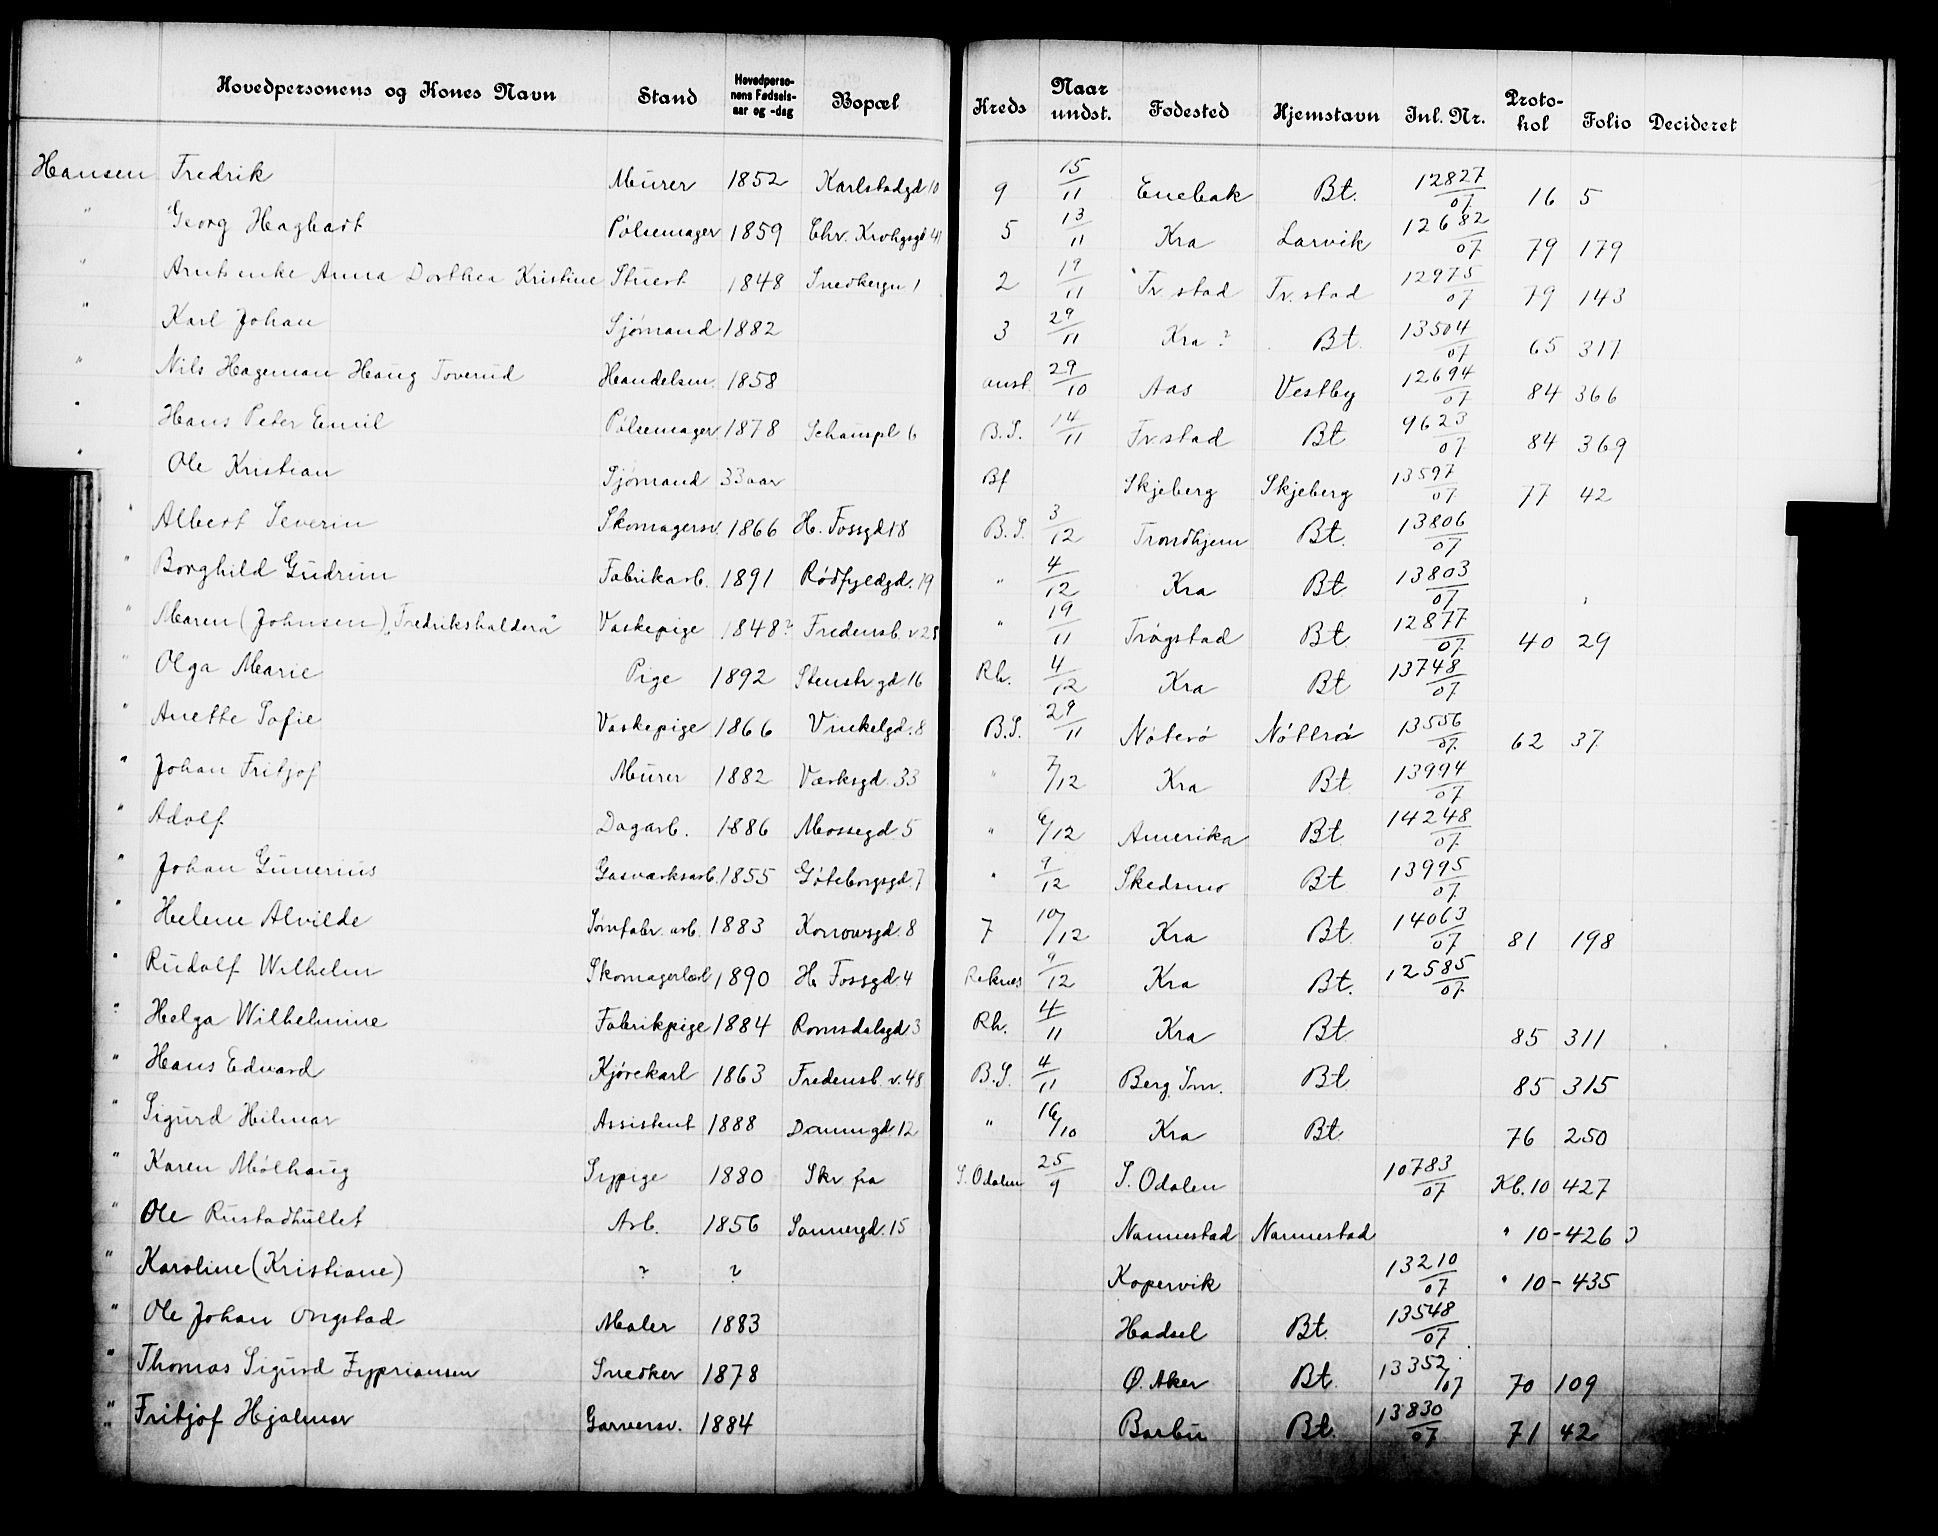 Hovedpersonens og Kones Navn | Stand | Hovedperso-nens Fødsels-aar og -dag | Bopæl | Kreds | Naar undst. | Fødested | Hjemstavn | Inl. Nr. | Proto-kol | Folio | Decideret
Hansen Fredrik | Murer | 1852 | Karlstadgd 10 | 9 | 15/11 | Enebak | Bt. | 12827/07 | 16 | 5
" Georg Hagbart | Pølsemager | 1859 | Chr. Krohgsgd 41 | 5 | 13/11 | Kra | Larvik | 12682/07 | 79 | 179
" Arntsenke Anna Dorthea Kristine | Stuert | 1848 | Snedkergn 1 | 2 | 19/11 | Fr.stad | Fr.stad | 12975/07 | 79 | 143
" Karl Johan | Sjømand | 1882 | 3 | 29/11 | Kra ? | Bt. | 13504/07 | 65 | 317
" Nils Hageman Haug Toverud | Handelsm. | 1858 | anst. | 29/10 | Aas | Vestby | 12694/07 | 84 | 366
" Hans Peter Emil | Pølsemager | 1878 | Schauspl 6 | B.S. | 14/11 | Fr.stad | Bt | 9623/07 | 84 | 369
" Ole Kristian | Sjømand | 33 aar | Bf | Skjeberg | Skjeberg | 13597/07 | 77 | 42
" Albert Severin | Skomagersv. | 1866 | H. Fossgd 18 | B.S. | 3/12 | Trondhjem | Bt. | 13806/07
" Borghild Gudrun | Fabrikarb. | 1891 | Rødfyldgd. 19 | " | 4/12 | Kra | Bt | 13803/07
" Maren (Johnsen) "Fredrikshaldera" | Vaskepige | 1848? | Fredensb. v 28 | " | 19/11 | Trøgstad | Bt. | 12877/07 | 40 | 29
" Olga Marie | Pige | 1892 | Stenstr gd 16 | Rh. | 4/12 | Kra | Bt | 13748/07
" Anette Sofie | Vaskepige | 1866 | Vinkelgd. 8 | B.S. | 29/11 | Nøterø | Nøtterø | 13556/07 | 62 | 37
" Johan Fritjof | Murer | 1882 | Værksgd. 33 | " | 7/12 | Kra | Bt | 13994/07
" Adolf | Dagarb. | 1886 | Mossegd 5 | " | 6/12 | Amerika | Bt. | 14248/07
" Johan Gunerius | Gasværksarb. | 1855 | Gøteborgsgd. 7 | " | 9/12 | Skedsmo | Bt | 13995/07
" Helene Alvilde | Sømfabr. arb. | 1883 | Korrowsgd. 8 | 7 | 10/12 | Kra | Bt. | 14063/07 | 81 | 198
" Rudolf Wilhelm | Skomagerlærl | 1890 | H. Fossgd. 4 | Reknes | 9/12 | Kra | Bt. | 12585/07
" Helga Wilhelmine | Fabrikpige | 1884 | Romsdalsgd 3 | Rh. | 4/11 | Kra | Bt | 85 | 311
" Hans Edvard | Kjørekarl | 1863 | Fredensb. v. 48 | B.S. | 4/11 | Berg, Sm. | Bt. | 85 | 315
" Sigurd Hilmar | Assistent | 1888 | Daunngd. 12 | " | 16/10 | Kra | Bt. | 76 | 250
" Karen Mølhaug | Sypige | 1880 | Skr fra | S. Odalen | 25/9 | S. Odalen | 10783/07 | Kb. 10 | 427
" Ole Rustadhullet | Arb. | 1856 | Sannergd. 15 | Nannestad | Nannestad | " 10 - 426
" Karoline (Kristiane) | ? | ? | Kopervik | 13210/07 | " 10 - 435
" Ole Johan Ongstad | Maler | 1883 | Hadsel | Bt. | 13548/07
" Thomas Sigurd Zypriansen | Snedker | 1878 | Ø. Aker | Bt. | 13352/07 | 70 | 109
" Fritjof Hjalmar | Garversv. | 1884 | Barbu | Bt. | 13830/07 | 71 | 42